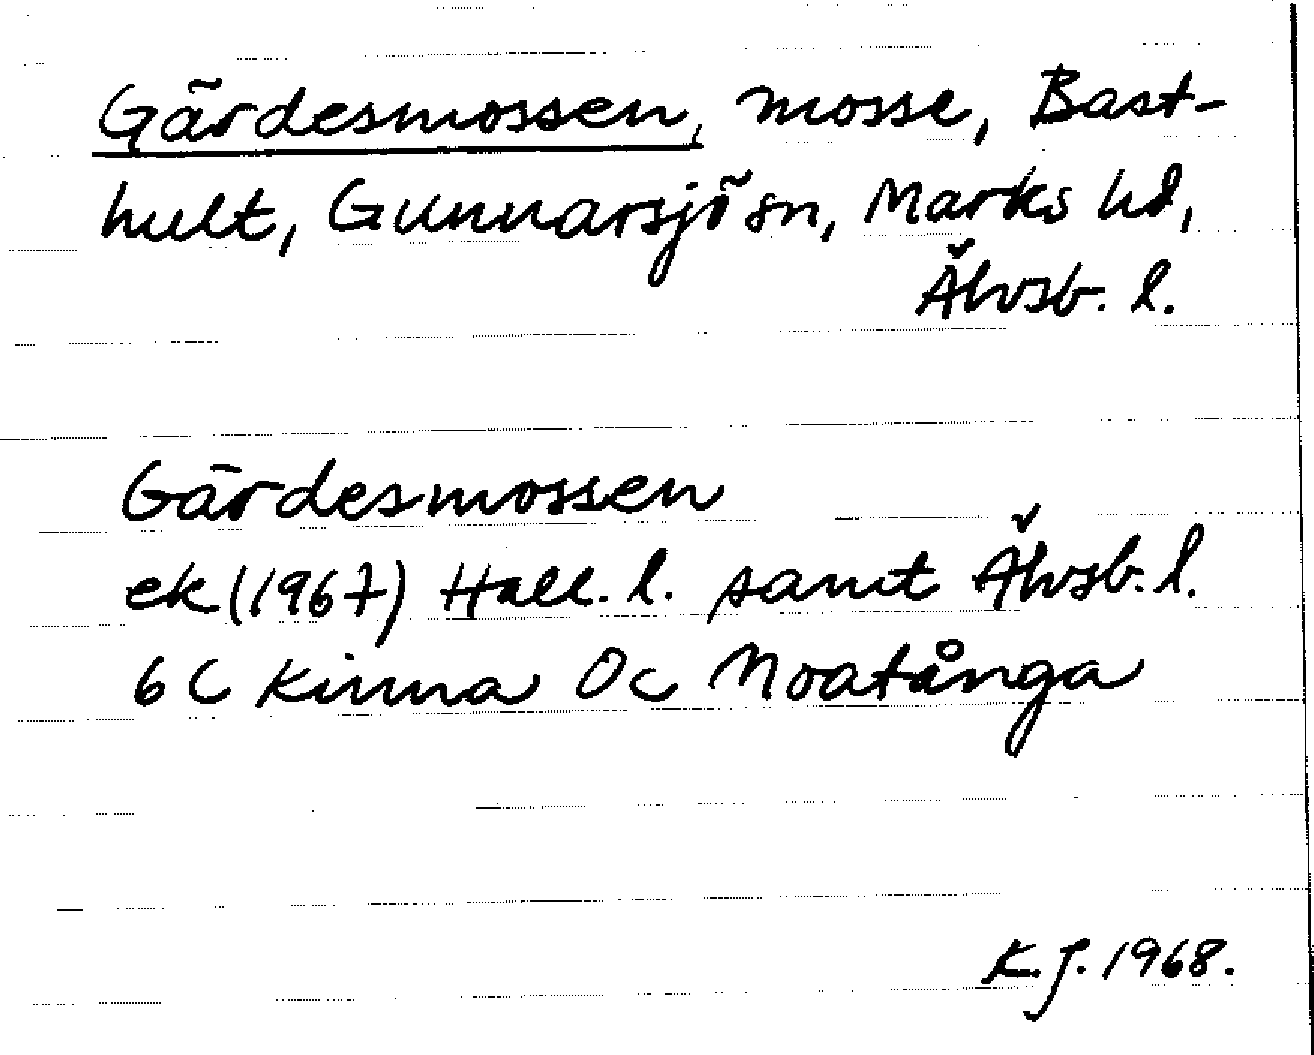 Gärdesmossen, mosse, Bast-
hult, Gunnarsjö sn, Marks hd,
Älvsb. l.
Gärdesmossen
ek (1967) Hall. l. samt Älvsb. l.
6 C Kinna 0c Noatånga
K.J. 1968.